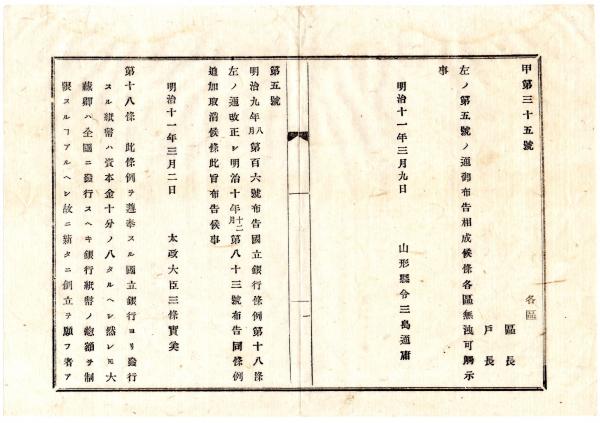 甲第三十五號
各區
區長
戸長
左ノ第五號ノ通御布告相成候條各區無洩可觸示
事
明治十一年三月九日
山形縣令三島通庸
第五號
明治九年八月第百六號布告國立銀行條例第十八條
左ノ通改正シ明治十年十二月第八十三號布告同條例
追加取消候條此旨布告候事
明治十一年三月二日
太政大臣三條實美
第十八條 此條例ヲ遵奉スル國立銀行ヨリ發行
スル紙幣ハ資本金十分ノ八タルヘシ然レ𪜈大
藏卿ハ全國ニ發行スヘキ銀行紙幣ノ總額ヲ制
限スルヿアルヘシ故ニ新タニ創立ヲ願フ者ア